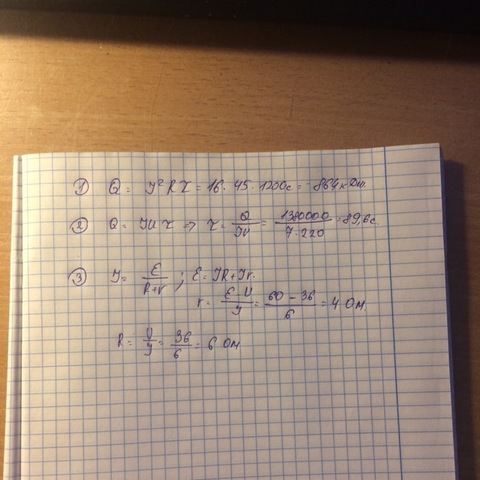 ① Q = I²Rτ = 16 · 45 · 1200с = 864кДж.
② Q = IUτ => τ = Q/IU = 1380000/7·220 = 89,6с.
③ I = ℰ/R+r ; ℰ = IR + Ir.
r = ℰ-U/I = 60-36/6 = 4 Ом.
R = U/I = 36/6 = 6 Ом